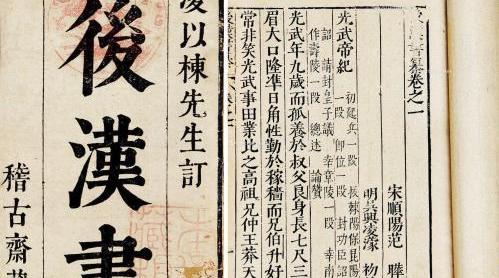 凌以棟先生訂
後漢書
稽古齋
卷之一
宋順陽范 曄
明吳興凌濛 初
光武帝紀
初起兵一段 保昆陽
一段 即位一段 封功臣詔
詔 請封皇子議 幸章陵一段 幸南
作壽陵一段 總述 論贊
光武年九歲而孤養於叔父良身長七尺三
眉大口隆準日角性勤於稼穡而兄伯升好
常非笑光武事田業比之高祖兄仲王莽天